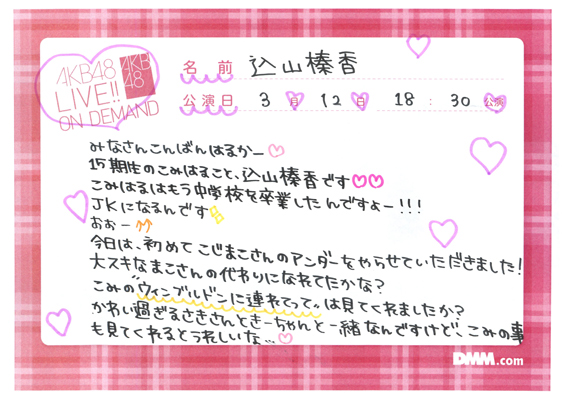 AKB48
LIVE!!
ON DEMAND
AKB
48
名前 込山榛香
公演日 3月12日 18:30公演
みなさんこんばんはるかー
15期生のこみはること、込山榛香です
こみはるはもう中学校を卒業したんですよー!!!
JKになるんです
おぉー
今日は、初めてこじまこさんのアンダーをやらせていただきました!
大スキなまこさんの代わりになれてたかな?
こみの"ウィンブルドンに連れてって"は見てくれましたか?
かわいい過ぎるさきさんときーちゃんと一緒なんですけど、こみの事
も見てくれるとうれしいな…
DMM.com